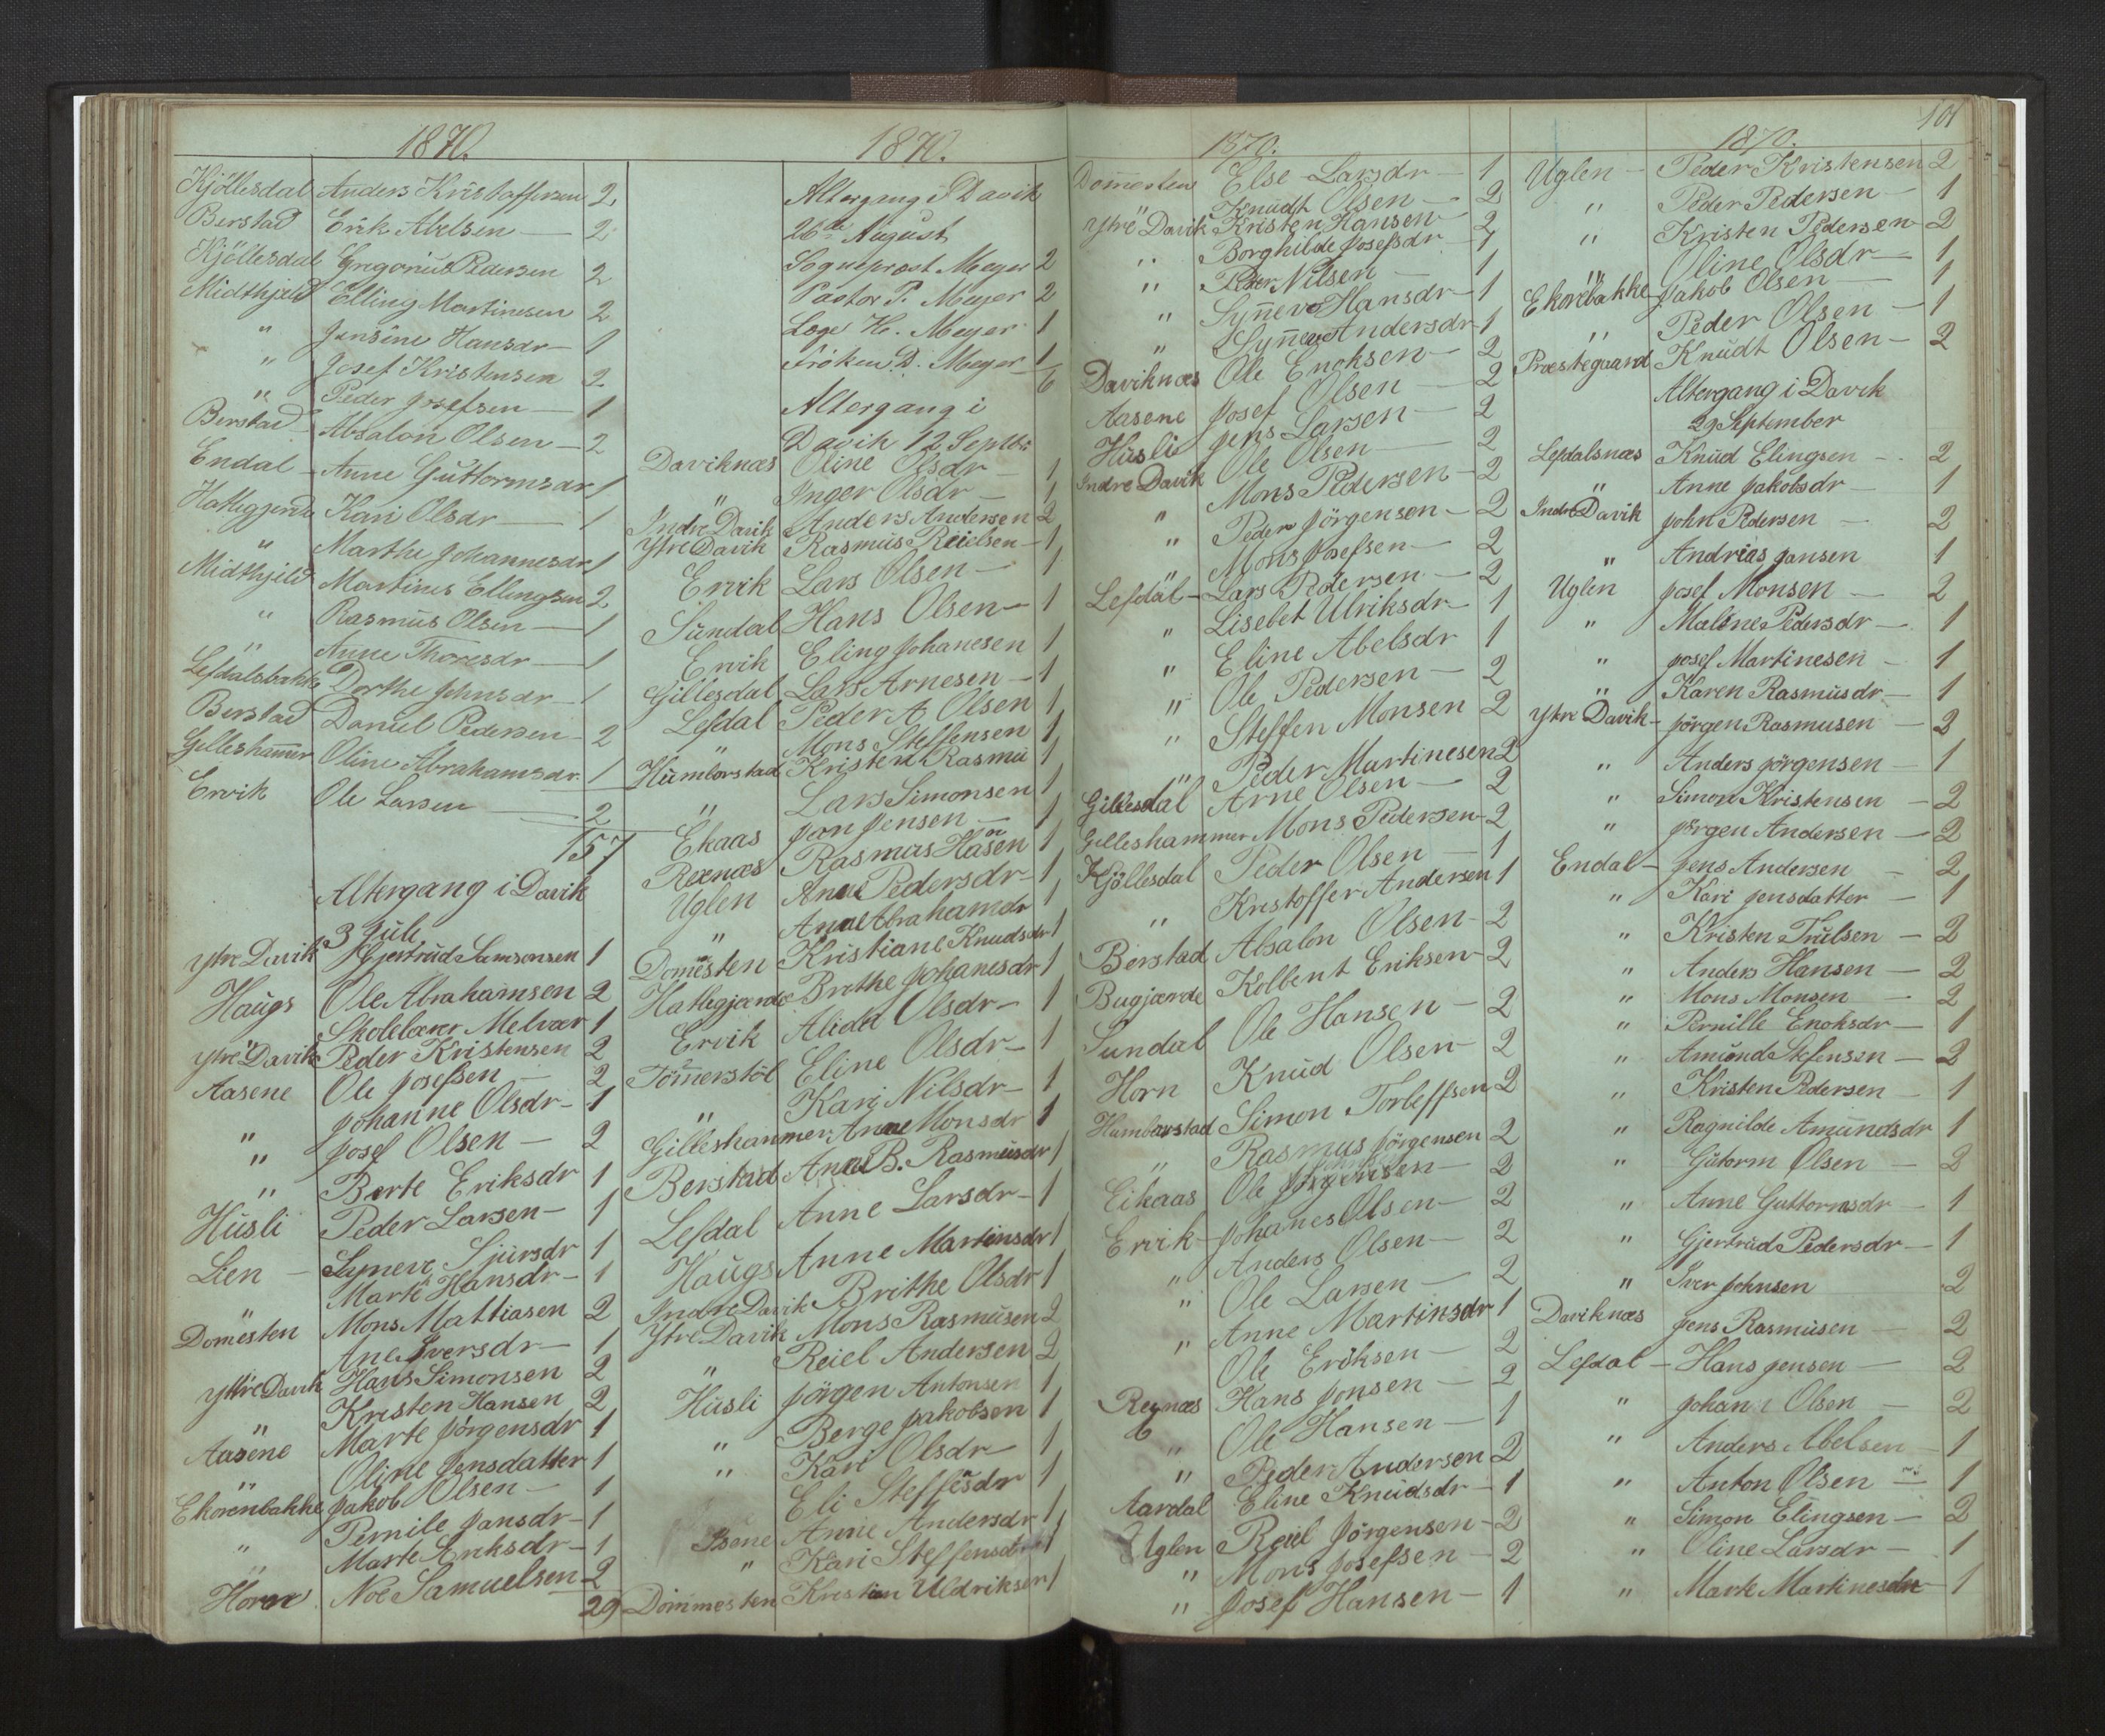 1870.
Kjöllesdal Anders Kristoffersen 2
Berstad Erik Abelsen — 2
Kjöllesdal Gregorius Pedersen 2
Midthjeld Elling Martinesen 2
" Jensine Hansdr — 1
" Josef Kristensen 2
" Peder Josefsen — 1
Berstad Absalon Olsen — 2
Endal — Anne Guttormsdr 1
Hatlegjerde Kari Olsdr — 1
" Marthe Johannesdr 1
Midthjeld Martinus Ellingsen 2
" Rasmus Olsen — 1
" Anne Thoresdr — 1
Lefdalsbakke Dorthe Johnsdr — 1
Berstad Daniel Pedersen — 2
Gilleshammer Oline Abrahamsdr 1
Ervik Ole Larsen — 2
157
Altergang i Davik
3 Juli
Ytre Davik Gjertrud Samsonsen 1
Haugs Ole Abrahamsen 2
Skolelærer Melvær 1
Ytre Davik Peder Kristensen 2
Aasene Ole Josefsen — 2
Johanne Olsdr — 1
" Josef Olsen — 2
" Berte Eriksdr 1
Husli Peder Larsen — 1
Lien — Syneve Sjursdr 1
Marte Hansdr — 1
" Mons Mattiasen 2
Domesten Ane Iversdr — 1
Yttre Davik Hans Simonsen 2
Kristen Hansen 2
" Marte Jörgensdr 1
Aasene Oline Jensdatter 1
Ekorenbakke Jakob Olsen — 1
Pernile Jansdr — 1
" Marte Eriksdr — 1
Horn Noe Samuelsen 2
29
1870.
Altergang i Davik
26de August
Sogneprest Meyer 2
Pastor P. Meyer 2
Læge H. Meyer 1
Fröken D. Meyer 1
6
Altergang i
Davik 12 Septbr
Daviknæs Oline Olsdr — 1
" Inger Olsdr — 1
Indre Davik Anders Andersen 2
Ytre Davik Rasmus Reielsen — 1
Ervik Lars Olsen — 1
Sundal Hans Olsen — 1
Ervik Eling Johanesen 1
Gillesdal Lars Arnesen — 1
Lefdal Peder A Olsen 1
" Mons Steffensen 1
Humborstad Kristen Rasmu 1
" Lars Simonsen 1
Ekaas Jon Jensen — 1
Rexnæs Rasmus Hasen 1
Uglen Ane Pedersdr — 1
" Anne Abrahamdr 1
Domesten Kristiane Knudsdr 1
Hatlegjærde Brethe Johanesdr 1
Ervik Alida Olsdr — 1
Tömmerstöl Eline Olsdr — 1
" Kari Nilsdr — 1
Gilleshammer Anne Monsdr 1
Berstad Ane B. Rasmusdr 1
Lefdal Anne Larsdr — 1
Haugs Anne Martinsdr 1
Indre Davik Brithe Olsdr 1
Ytre Davik Mons Rasmusen 2
" Reiel Andersen 2
Husli Jörgen Antonsen 1
" Berge Jakobsen 1
" Kari Olsdr 1
Eli Steffesdr 1
Isene Anne Andersdr 1
" Kari Steffensdr 1
Dommesten Kristian Uldriksen 1
1870.
Domesten Else Larsdr — 1
" Knudt Olsen — 2
Ytre Davik Kristen Hansen — 2
" Borghilde Josefsdr — 1
" Peter Nilsen — 1
" Synneve Hansdr — 1
" Synneve Andersdr 1
Daviknæs Ole Enoksen — 2
Aasene Josef Olsen — 2
Husli Jens Larsen — 2
Indre Davik Ole Olsen — 2
" Mons Pedersen — 2
" Peder Jörgensen — 2
" Mons Josefsen — 2
Lefdal — Lars Pedersen — 2
" Lisebet Ulriksdr — 1
" Eline Abelsdr 1
" Ole Pedersen — 2
" Steffen Monsen 2
" Peder Martinesen 2
Gillesdal Arne Olsen — 2
Gilleshammer Mons Pedersen — 2
Kjöllesdal Peder Olsen — 1
" Kristoffer Andersen 1
Berstad Absalon Olsen — 2
Bugjærde Kolbent Eriksen — 2
Sundal Ole Hansen — 2
Horn Knud Olsen — 2
Humborstad Simon Torleffsen 2
" Rasmus Jörgensen 2
Eikaas Ole — 2
Ervik — Johanes Olsen — 2
" Anders Olsen — 2
" Ole Larsen — 2
" Anne Martinsdr 1
Ole Eriksen — 2
Reynæs Hans Jonsen — 2
" Ole Hansen — 1
" Peder Andersen 2
Aardal Eline Knudsdr — 1
Uglen Reiel Jörgensen — 2
" Mons Josefsen — 2
" Josef Hansen — 1
101
1870.
Uglen — Peder Kristensen 2
" Peder Pedersen — 1
" Kristen Pedersen — 2
" Oline Olsdr — 1
Ekorebakke Jakob Olsen — 1
" Peder Olsen — 1
Præstegaard Knudt Olsen — 2
Altergang i Davik
29 September
Lefdalsnæs Knud Elingsen — 2
" Anne Jakobsdr — 1
Indre Davik John Pedersen — 2
" Andrias Jansen 1
Uglen Josef Monsen — 2
" Maline Pedersdr — 1
" Josef Martinesen — 1
" Karen Rasmusdr — 1
Ytre Davik — Jörgen Rasmusen — 2
" Anders Jörgensen — 1
" Simon Kristensen — 2
" Jörgen Andersen — 2
Endal — Jens Andersen — 2
" Kari Jensdatter — 1
" Kristen Trulsen — 2
" Anders Hansen — 2
" Mons Monsen — 2
" Pernille Enoksdr — 1
" Amund Stefensen — 2
" Kristen Pedersen — 1
" Ragnilde Amundsdr 1
" Gutorm Olsen — 2
" Anne Guttormsdr — 1
" Gjertrud Pedersdr — 1
" Iver Johnsen 2
Daviknæs Jens Rasmusen — 2
Lefdal — Hans Jensen — 2
" Johan Olsen — 2
" Anders Abelsen — 1
" Anton Olsen — 1
" Simon Elingsen — 2
" Oline Larsdr — 1
" Marte Martinesdr — 1